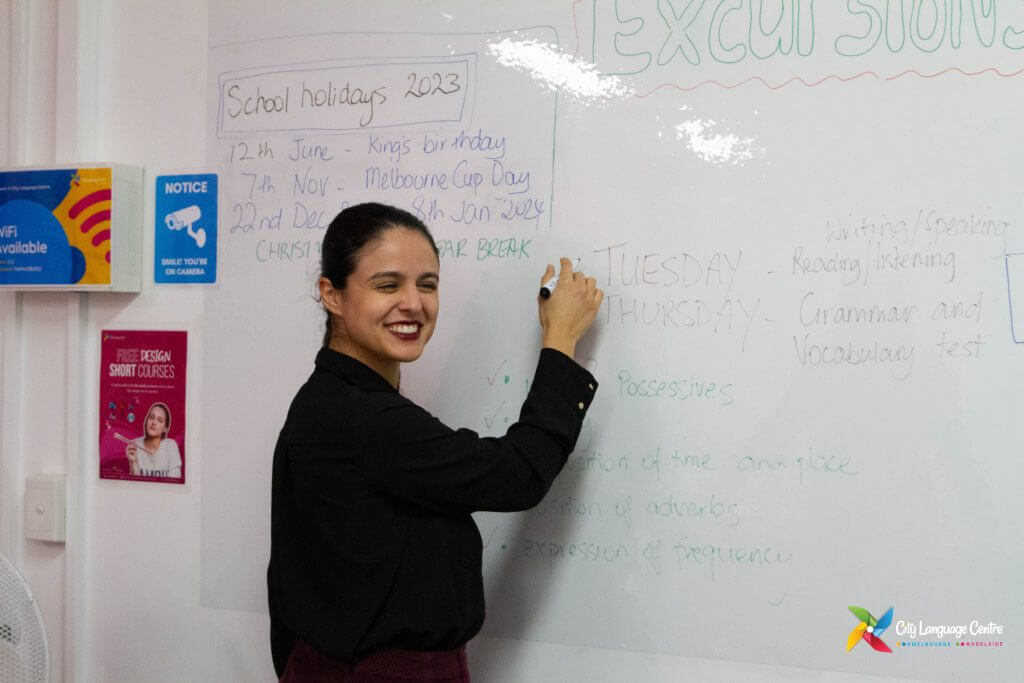 Excursions
School holidays 2023
12th June - King's birthday
7th Nov - Melbourne Cup Day
22nd Dec 8th Jan 2024
BREAK
Writing/Speaking
TUESDAY - Reading/listening
THURSDAY - Grammar and
Vocabulary test
Possessives
of time and place
of adverbs
expression of frequency
WiFi
Available
NOTICE
SMILE! YOU'RE
ON CAMERA
FREE DESIGN
SHORT COURSES
City Language Centre
MELBOURNE ADELAIDE